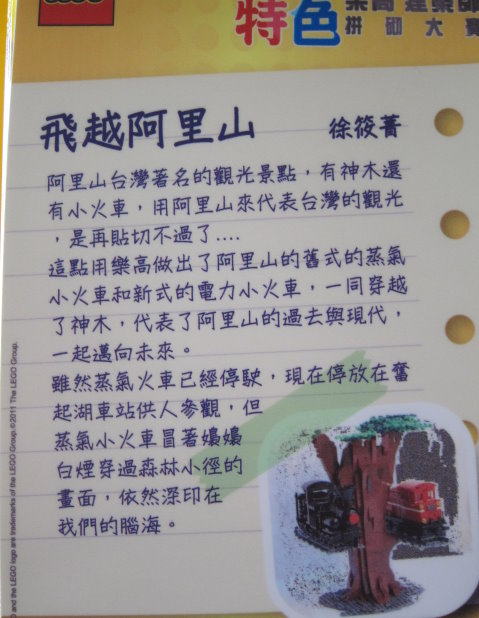 LEGO
特色
樂高建築師
拼砌大賽
飛越阿里山
徐筱菁
阿里山台灣著名的觀光景點,有神木還
有小火車,用阿里山來代表台灣的觀光
,是再貼切不過了....
這點用樂高做出了阿里山的舊式的蒸氣
小火車和新式的電力小火車,一同穿越
了神木,代表了阿里山的過去與現代,
一起邁向未來。
雖然蒸氣火車已經停駛,現在停放在奮
起湖車站供人參觀,但
蒸氣小火車冒著孃孃
白煙穿過森林小徑的
畫面,依然深印在
我們的腦海。
and the LEGO logo are trademarks of the LEGO Group.©2011 The LEGO Group.